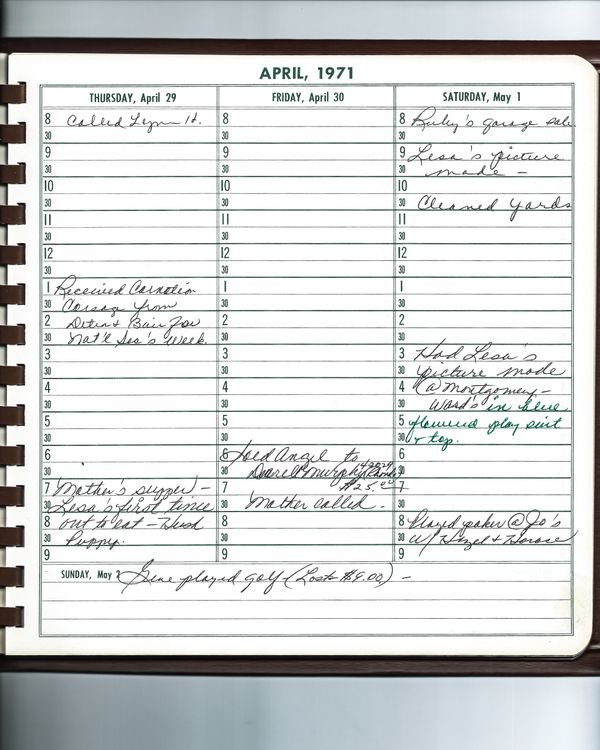 APRIL, 1971
THURSDAY, April 29
8 Called Lynn
30
9
30
10
30
11
30
12
30
1 Received Carnation
30 Corsage from
2 Bair for
30 Nat'l Sec's Week.
3
30
4
30
5
30
6
30
7 Mother's supper –
30 Lesa's first time
8 out to eat – Hush
30 Puppy.
9
FRIDAY, April 30
8
30
9
30
10
30
11
30
12
30
1
30
2
30
3
30
4
30
5
30
6 Sold Angel to
30 Murphy
7 $25.00
30 Mother called.
8
30
9
SATURDAY, May 1
8 Ruby's garage sale.
30
9 Lesa's picture
30 made –
10
30 Cleaned yards
11
30
12
30
1
30
2
30
3 Had Lesa's
30 picture made
4 @ Montgomery –
30 Ward's in blue
5 flowered play suit
30 & top.
6
30
7
30
8 Played poker @ Jo's
30 w/ Hazel & Horace
9
SUNDAY, May 2 Gene played golf (Lost $9.00) –